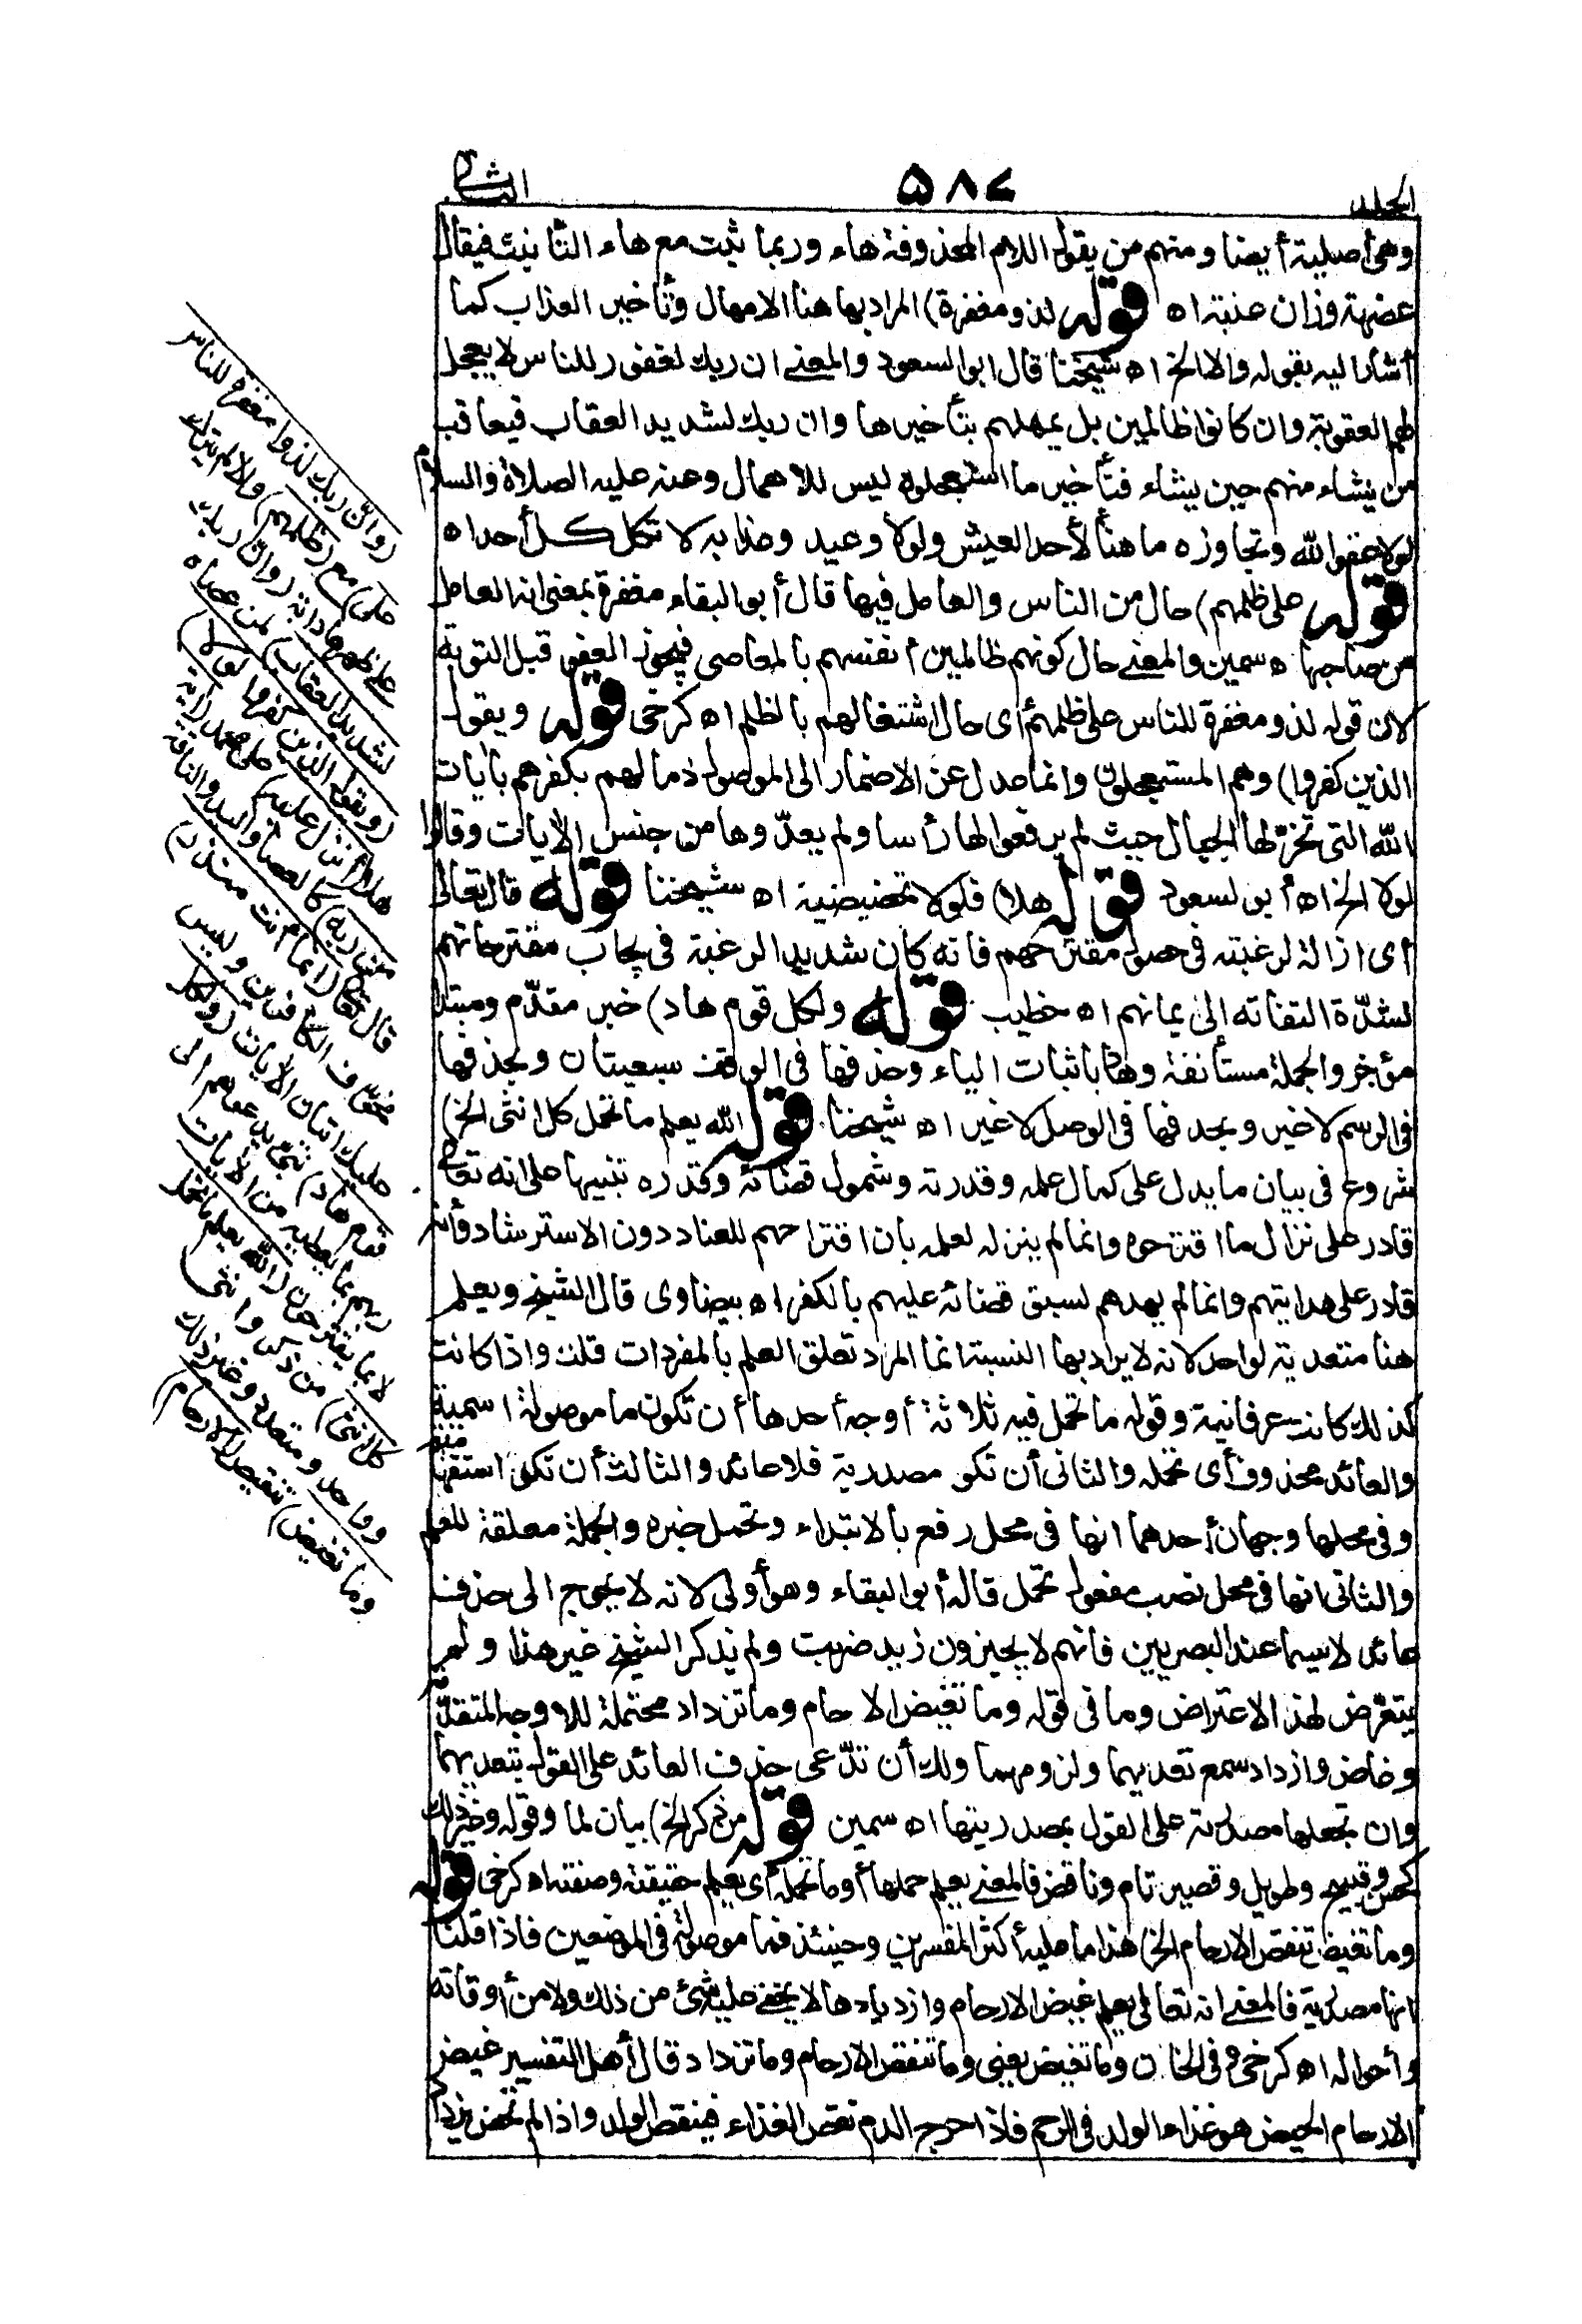 الجلد
٥٨٧
الثاني
وهي أصلية أيضا ومنهم من يقول اللام المحذوفة هاء وربما ثبت مع هاء التأنيث فيقال
عضهة وزان عنبة اه قوله لذو مغفرة) المراد بها هنا الامهال وتأخير العذاب كما
أشار اليه بقوله والا الخ اه شيخنا قال ابو السعود والمعنى ان ربك لغفور للناس لا يعجل
لهم العقوبة وان كانوا ظالمين بل يمهلهم بتأخيرها وان ربك لشديد العقاب فيعاقب
من يشاء منهم حين يشاء فتأخير ما استعجلوه ليس للاهمال وعنه عليه الصلاة والسلام
لولا عفو الله وتجاوزه ما هنأ لأحد العيش ولولا وعيده وعذابه لاتكل كل أحد اه
قوله على ظلمهم) حال من الناس والعامل فيها قال أبو البقاء مغفرة بمعنى انه العامل
من صاحبها ه سمين والمعنى حال كونهم ظالمين أنفسهم بالمعاصي فيجوز العفو قبل التوبة
لان قوله لذو مغفرة للناس على ظلمهم أى حال اشتغالهم بالظلم اه كرخى قوله ويقول
الذين كفروا) وهم المستعجلون وانما عدل عن الاضمار الى الموصول ذما لهم بكفرهم بآيات
الله التى تخر لها الجبال حيث لم يرفعوا لها رأسا ولم يعدّوها من جنس الآيات وقالوا
لولا الخ اه أبو السعود قوله هلا) فلولا تحضيضية اه شيخنا قوله قال تعالى
أى ازالة لرغبته فى حصول مقترحهم فانه كان شديد الرغبة فى ايجاب مقترحاتهم
لشدّة التفاته الى ايمانهم اه خطيب قوله ولكل قوم هاد) خبر مقدّم ومبتدا
مؤخر والجملة مستأنفة وهاد باثبات الياء وحذفها فى الوقف سبعيتان وبحذفها
فى الرسم لا غير وبحذفها فى الوصل لا غير اه شيخنا قوله الله يعلم ما تحمل كل انثى الخ)
شروع فى بيان ما يدل على كمال علمه وقدرته وشمول قضائه وقدره تنبيها على انه تعالى
قادر على انزال ما اقترحوه وانما لم ينزله لعلمه بان اقتراحهم للعناد دون الاسترشاد وأنه
قادر على هدايتهم وانما لم يهدهم لسبق قضائه عليهم بالكفر اه بيضاوى قال الشيخ ويعلم
هنا متعدية لواحد لانه لا يراد بها النسبة انما المراد تعلق العلم بالمفردات قلت واذا كانت
كذلك كانت عرفانية وقوله ما تحمل فيه ثلاثة أوجه أحدها أن تكون ما موصولة اسمية
والعائد محذوف أى تحمله والثانى أن تكون مصدرية فلا عائد والثالث أن تكون استفهامية
وفى محلها وجهان أحدهما انها فى محل رفع بالابتداء وتحمل خبره والجملة معلقة للعلم
والثانى انها فى محل نصب مفعول تحمل قاله أبو البقاء وهو أولى لانه لا يحوج الى حذف
عائد لا سيما عند البصريين فانهم لا يجيزون زيد ضربت ولم يذكر الشيخ غير هذا ولم
يتعرّض لهذا الاعتراض وما فى قوله وما تغيض الارحام وما تزداد محتملة للاوجه المتقدّمة
وغاض وازداد سمع تعديهما ولزومهما ولك أن تدّعى حذف العائد على القول بتعديهما
وان تجعلها مصدرية على القول بمصدريتها اه سمين قوله من ذكر الخ) بيان لما وقوله وغير ذلك
كحسن وقبيح وطويل وقصير تام وناقص فالمعنى يعلم حملها أو ما تحمله أى يعلم حقيقته وصفته اه كرخى قوله
وما تغيض تنقص الارحام الخ) هذا ما عليه أكثر المفسرين وحينئذ فما موصولة فى الموضعين فاذا قلنا
انها مصدرية فالمعنى انه تعالى يعلم غيض الارحام وازديادها لا يخفى عليه شئ من ذلك ولا من أوقاته
وأحواله اه كرخى وفى الخازن وما تغيض يعنى وما تنقص الارحام وما تزداد قال أهل التفسير غيض
الارحام الحيض هو غذاء الولد فى الرحم فاذا خرج الدم نقص الغذاء فينقص الولد واذا لم تحض يزداد
(وان ربك لذو مغفرة للناس
على) مع (ظلمهم) والا لم يترك
على ظهرها دابة (وان ربك
لشديد العقاب) لمن عصاه
(ويقول الذين كفروا لولا)
هلا (أنزل عليه) على محمد (آية
من ربه) كالعصا واليد والناقة
قال تعالى (انما أنت منذر)
مخوّف الكافرين وليس
عليك اتيان الآيات (ولكل
قوم هاد) نبىّ يدعوهم الى
ربهم بما يعطيه من الآيات
لا بما يقترحون (الله يعلم ما تحمل
كل انثى) من ذكر وانثى
وواحد ومتعدد وغير ذلك
وما تغيض) تنقص (الارحام)